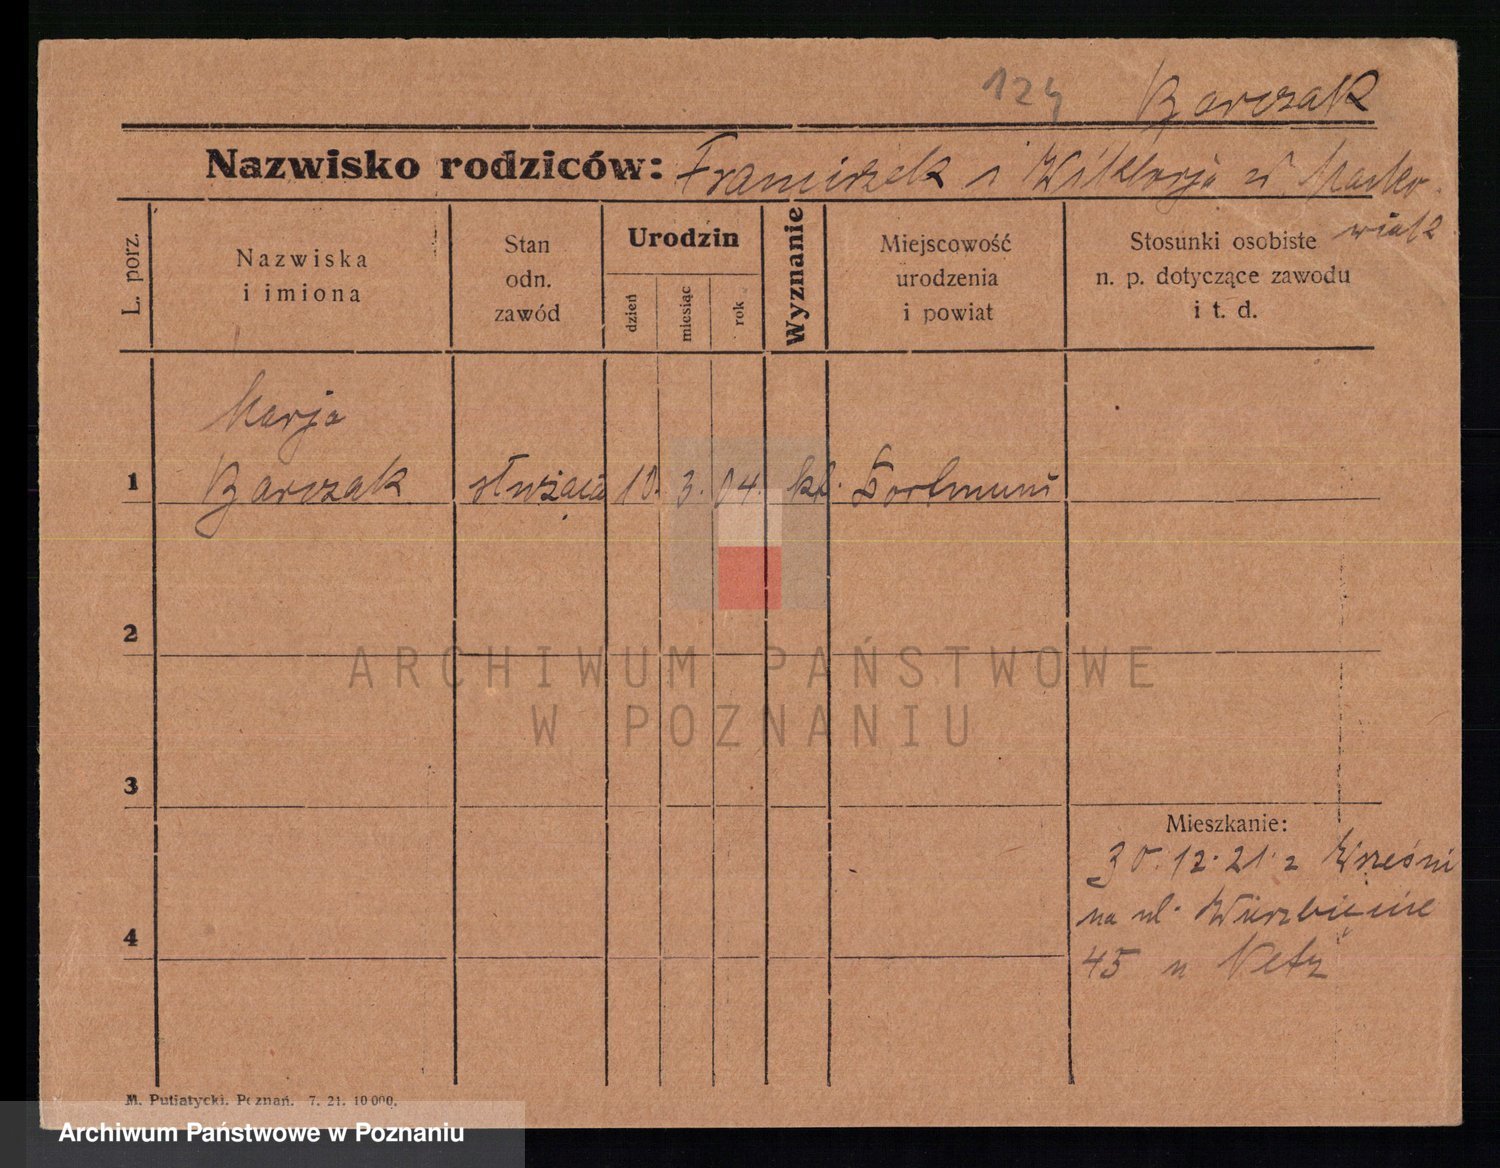 124 Barczak
Nazwisko rodziców: Franciszek i Wiktorja z Marko-
wiak
L. porz.
Nazwiska
i imiona
Stan
odn.
zawód
Urodzin
dzień
miesiąc
rok
Wyznanie
Miejscowość
urodzenia
i powiat
Stosunki osobiste
n. p. dotyczące zawodu
i t. d.
Marja
1 Barczak służąca 10. 3. 04. kt. Dortmund
2
3
4
Mieszkanie:
30.12.21 z Wrześni
na ul. Wierzbięcice
45 u
M. Putiatycki. Poznań. 7. 21. 10 000.
ARCHIWUM PAŃSTWOWE
W POZNANIU
Archiwum Państwowe w Poznaniu